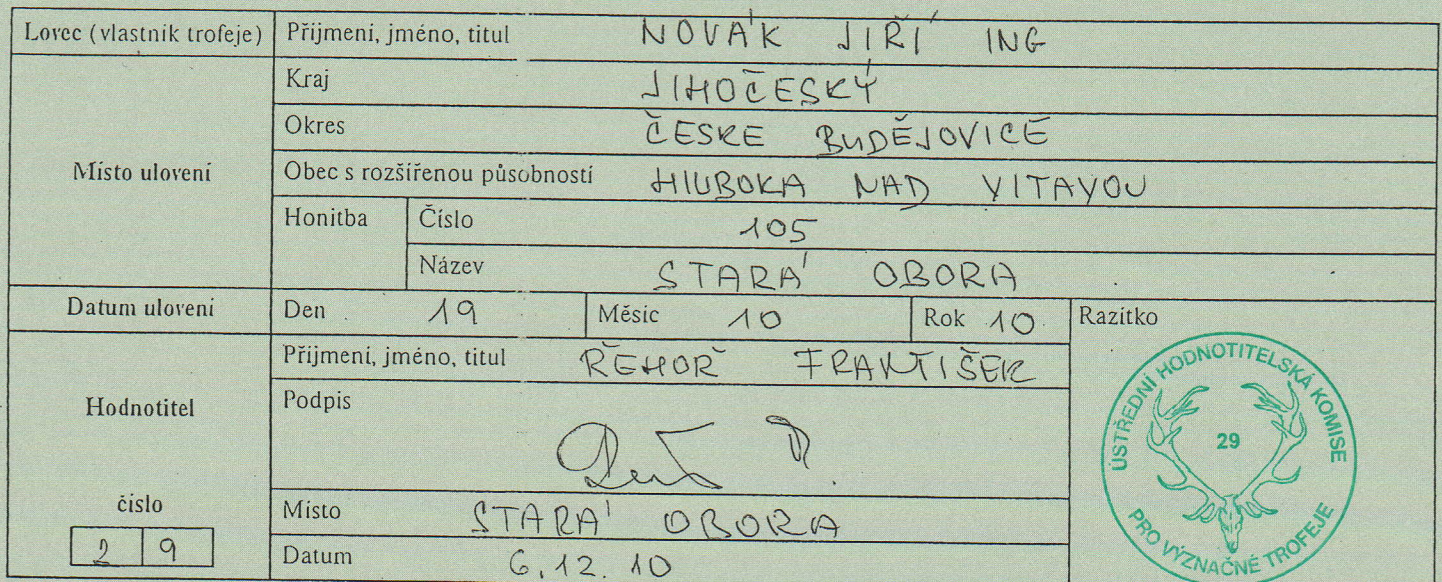 Lovec (vlastník trofeje) Příjmení, jméno, titul NOVÁK JIŘÍ ING
Místo ulovení
Kraj JIHOČESKÝ
Okres ČESKE BUDĚJOVICE
Obec s rozšířenou působností HLUBOKA NAD VLTAVOU
Honitba Číslo 105
Název STARÁ OBORA
Datum ulovení Den 19 Měsíc 10 Rok 10 Razítko
Hodnotitel
Příjmení, jméno, titul ŘEHOŘ FRANTIŠEK
Podpis
číslo
2 9
Místo STARÁ OBORA
Datum 6.12.10
ÚSTŘEDNÍ HODNOTITELSKÁ KOMISE
29
PRO VÝZNAČNÉ TROFEJE